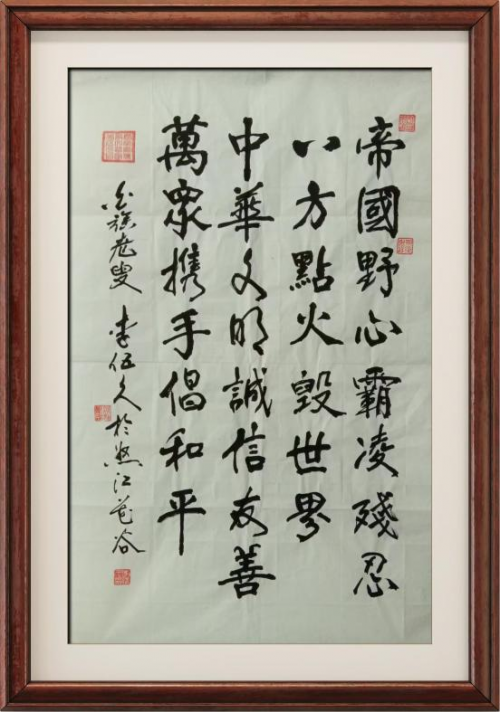 帝國野心霸凌殘忍
八方點火毀世界
中華文明誠信友善
萬眾携手倡和平
白族老叟 李伍久於怒江花谷